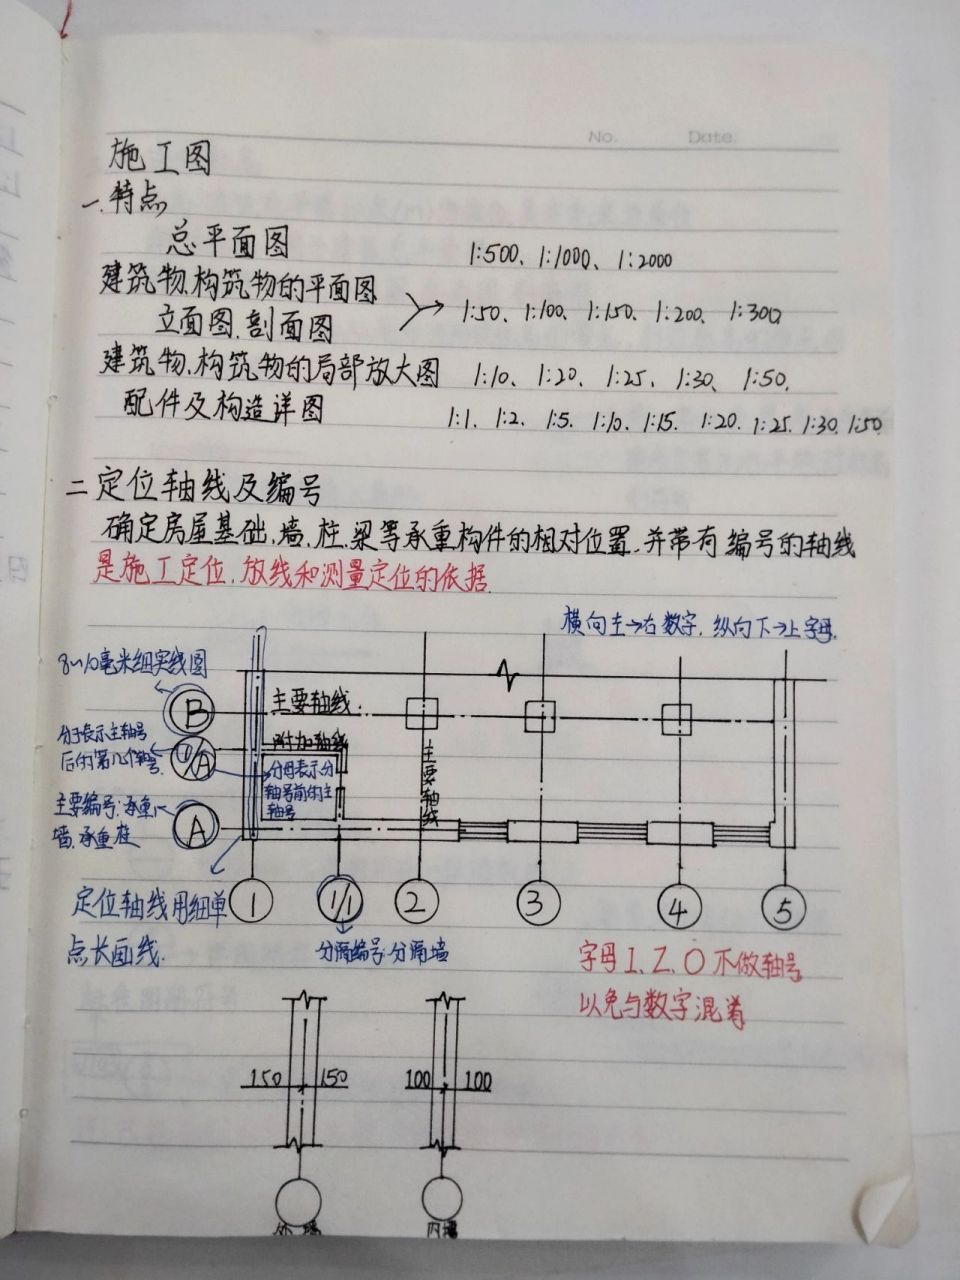 No. Date.
施工图
一.特点
总平面图 1:500、1:1000、1:2000
建筑物.构筑物的平面图
立面图.剖面图 1:50、1:100、1:150、1:200、1:300
建筑物.构筑物的局部放大图 1:10、1:20、1:25、1:30、1:50.
配件及构造详图 1:1、1:2、1:5、1:10、1:15、1:20、1:25、1:30、1:50
二定位轴线及编号
确定房屋基础.墙.柱.梁等承重构件的相对位置.并带有编号的轴线
是施工定位.放线和测量定位的依据.
横向左→右数字.纵向下→上字母.
8~10毫米细实线圆
B
主要轴线.
分子表示主轴号
后的第几个轴号.
1/A
附加轴线
分母表示分
轴号前的主
轴号
主要轴线
主要编号:承重
墙.承重柱
A
定位轴线用细单
点长画线.
1
1/1
2
3
4
5
分隔编号:分隔墙
字母I.Z.O不做轴号
以免与数字混淆
150 150
100 100
外墙
内墙